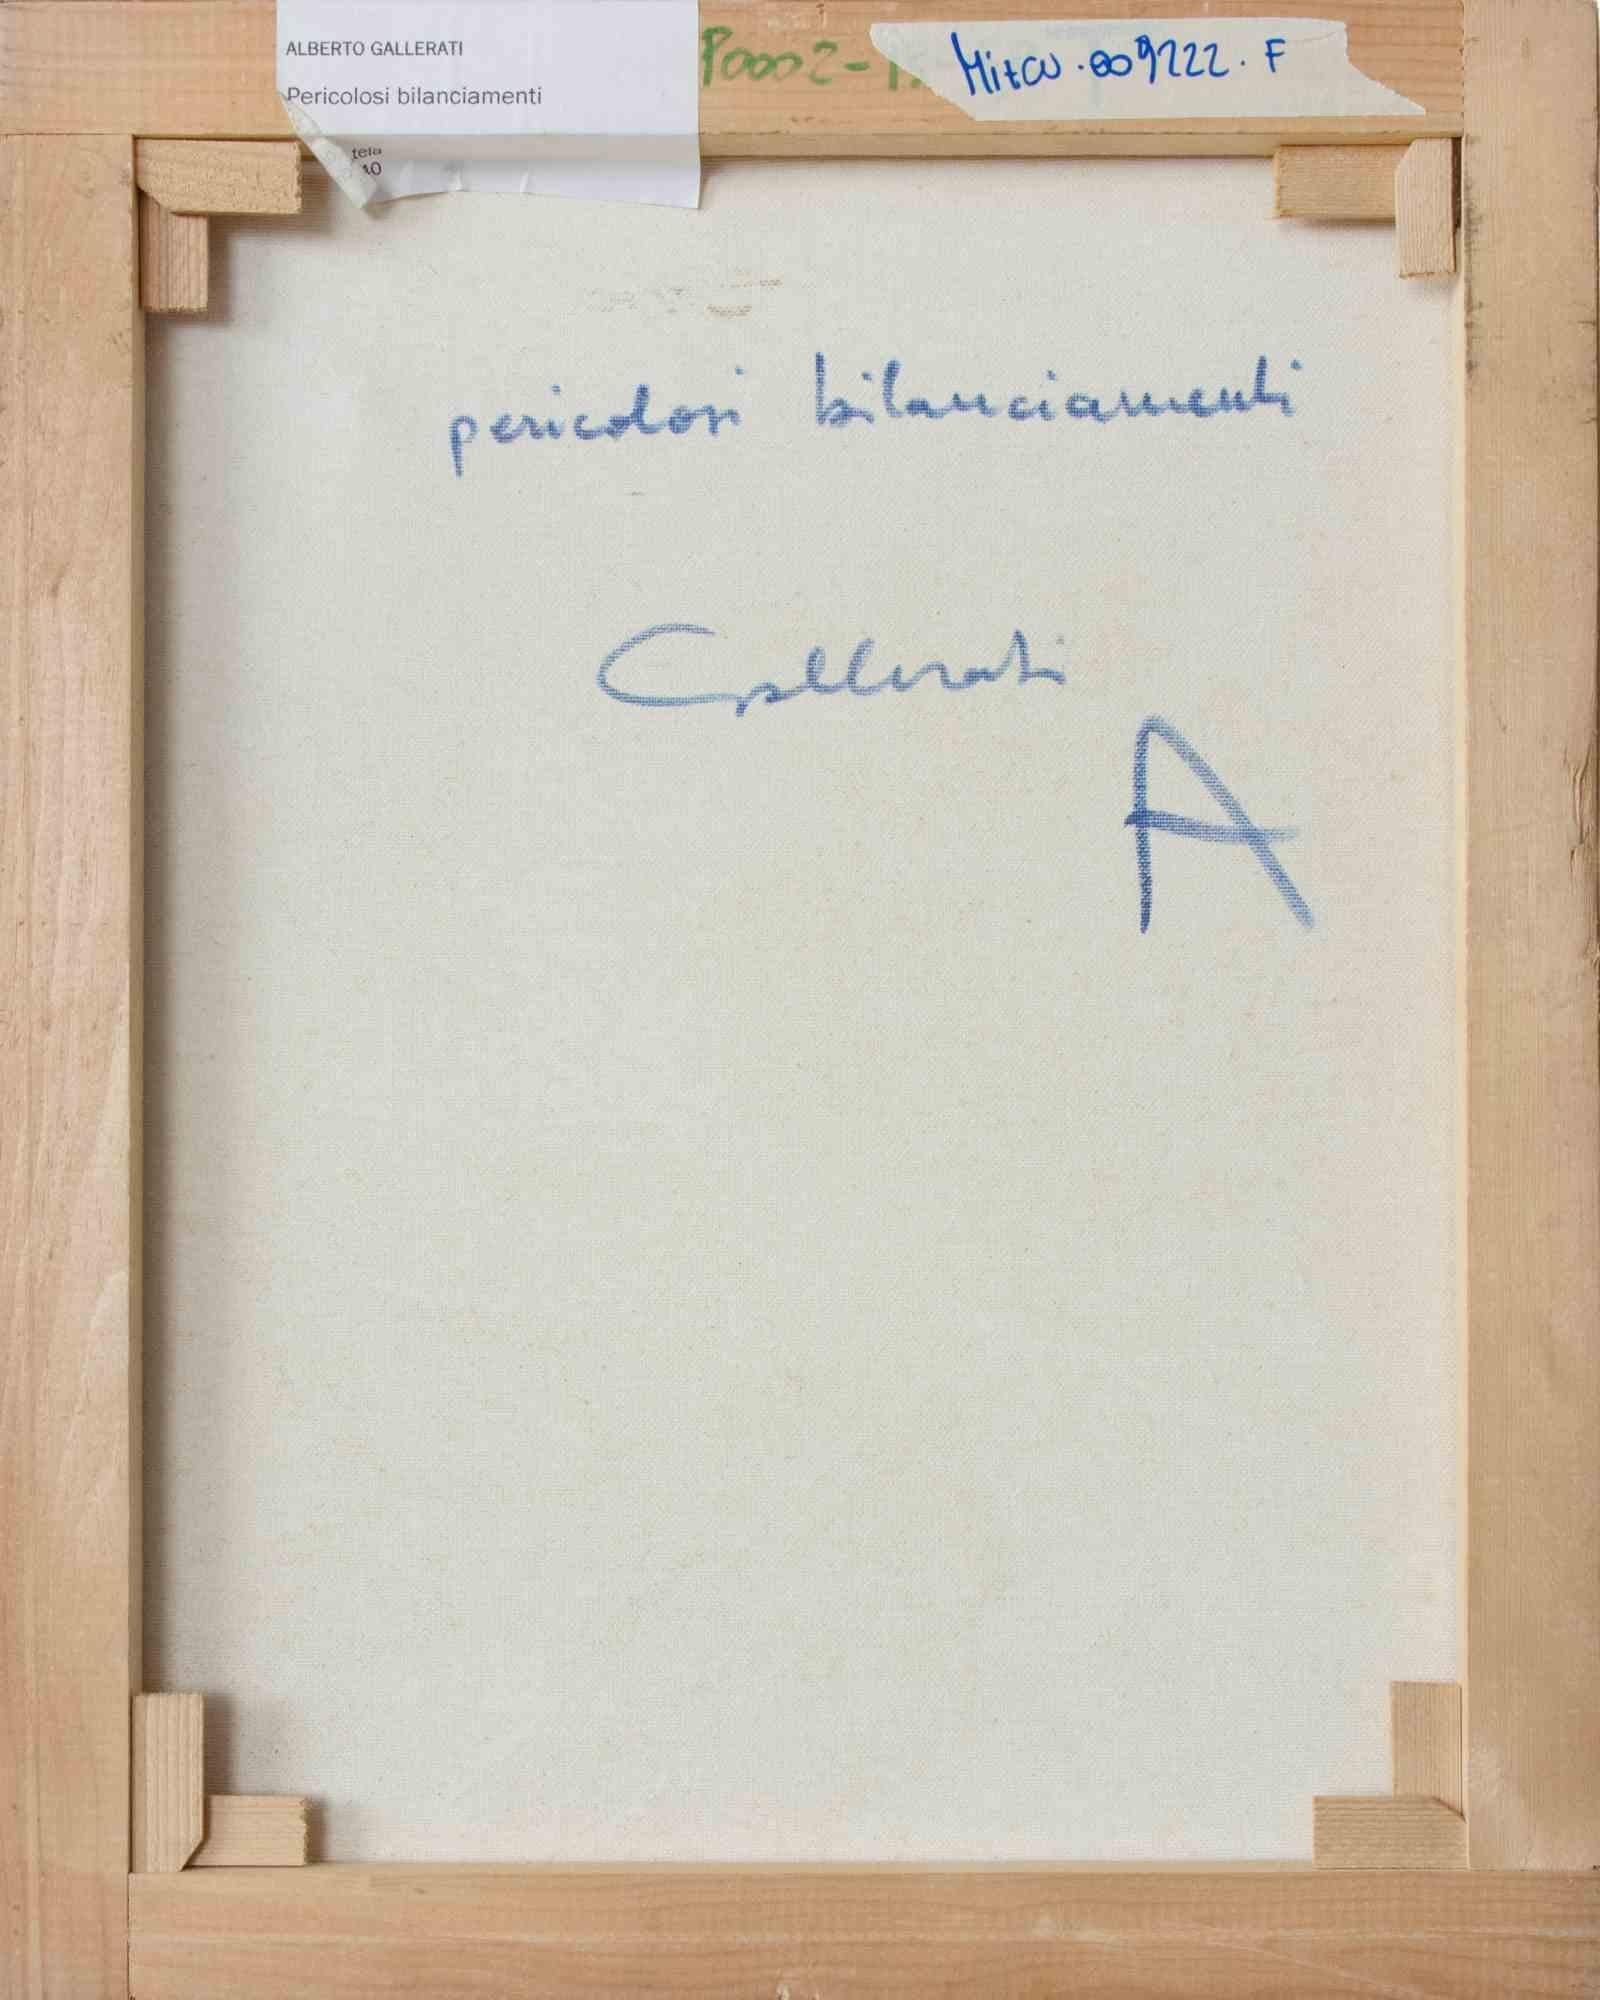 ALBERTO GALLERATI
Pericolosi bilanciamenti
tela
40
P0002-
Mitcu.009222.F
pericolosi bilanciamenti
Gallerati
A